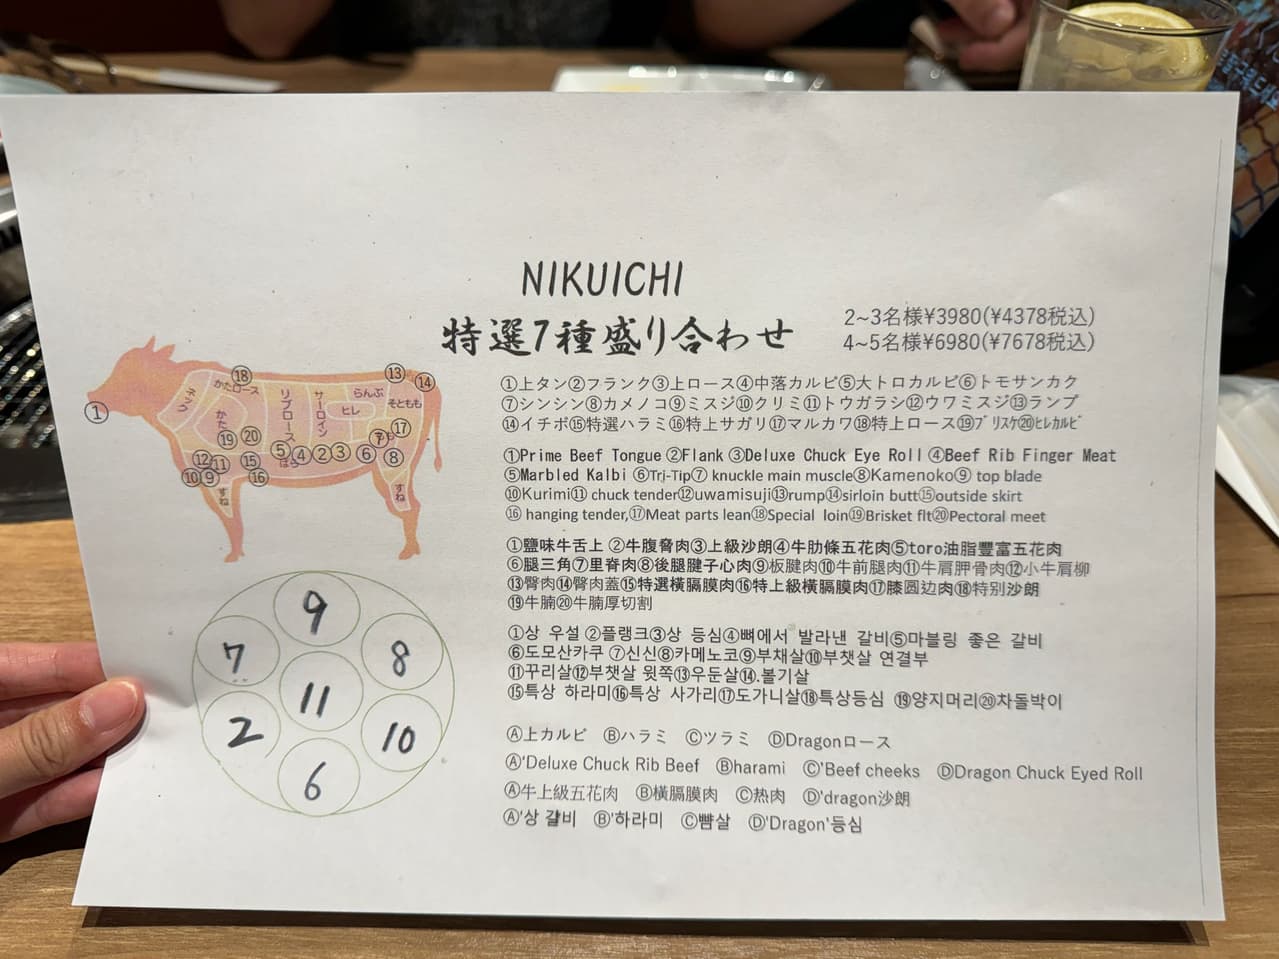 NIKUICHI
特選7種盛り合わせ
2~3名様¥3980(¥4378税込)
4~5名様¥6980(¥7678税込)
①上タン②フランク③上ロース④中落カルビ⑤大トロカルビ⑥トモサンカク
⑦シンシン⑧カメノコ⑨ミスジ⑩クリミ⑪トウガラシ⑫ウワミスジ⑬ランプ
⑭イチボ⑮特選ハラミ⑯特上サガリ⑰マルカワ⑱特上ロース⑲ブリスケ⑳ヒレカルビ
①Prime Beef Tongue ②Flank ③Deluxe Chuck Eye Roll ④Beef Rib Finger Meat
⑤Marbled Kalbi ⑥Trj-Tip⑦ knuckle main muscle⑧Kamenoko⑨ top blade
⑩Kurimi⑪ chuck tender⑫uwamisuji⑬rump⑭sirloin butt⑮outside skirt
⑯ hanging tender,⑰Meat parts lean⑱Special loin⑲Brisket flt⑳Pectoral meet
①鹽味牛舌上 ②牛腹脅肉③上級沙朗④牛肋條五花肉⑤toro油脂豐富五花肉
⑥腿三角⑦里脊肉⑧後腿腱子心肉⑨板腱肉⑩牛前腿肉⑪牛肩胛骨肉⑫小牛肩柳
⑬臀肉⑭臀肉蓋⑮特選橫膈膜肉⑯特上級橫膈膜肉⑰膝圆边肉⑱特别沙朗
⑲牛腩⑳牛腩厚切割
①상 우설 ②플랭크③상 등심④뼈에서 발라낸 갈비⑤마블링 좋은 갈비
⑥도모산카쿠 ⑦신신⑧카메노코⑨부채살⑩부챗살 연결부
⑪꾸리살⑫부챗살 윗쪽⑬우둔살⑭.볼기살
⑮특상 하라미⑯특상 사가리⑰도가니살⑱특상등심 ⑲양지머리⑳차돌박이
Ⓐ上カルビ Ⓑハラミ Ⓒツラミ ⒹDragonロース
Ⓐ'Deluxe Chuck Rib Beef Ⓑharami Ⓒ'Beef cheeks ⒹDragon Chuck Eyed Roll
Ⓐ牛上級五花肉 Ⓑ橫膈膜肉 Ⓒ热肉 Ⓓ'dragon沙朗
Ⓐ'상 갈비 Ⓑ'하라미 Ⓒ뺨살 Ⓓ'Dragon'등심
①
⑱
⑬
⑭
ネック
かたロース
かた
リブロース
サーロイン
ヒレ
らんぷ
そともも
⑰
⑲
⑳
⑤
④
②
③
⑥
⑦
⑧
⑫
⑪
⑮
⑩
⑨
⑯
ばら
すね
すね
9
7
8
11
2
10
6